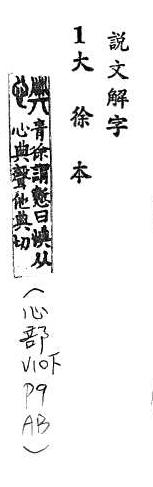 說文解字
1大徐本
青徐謂慙曰㥏从
心典聲他典切
(心部
V10下
P9
AB)